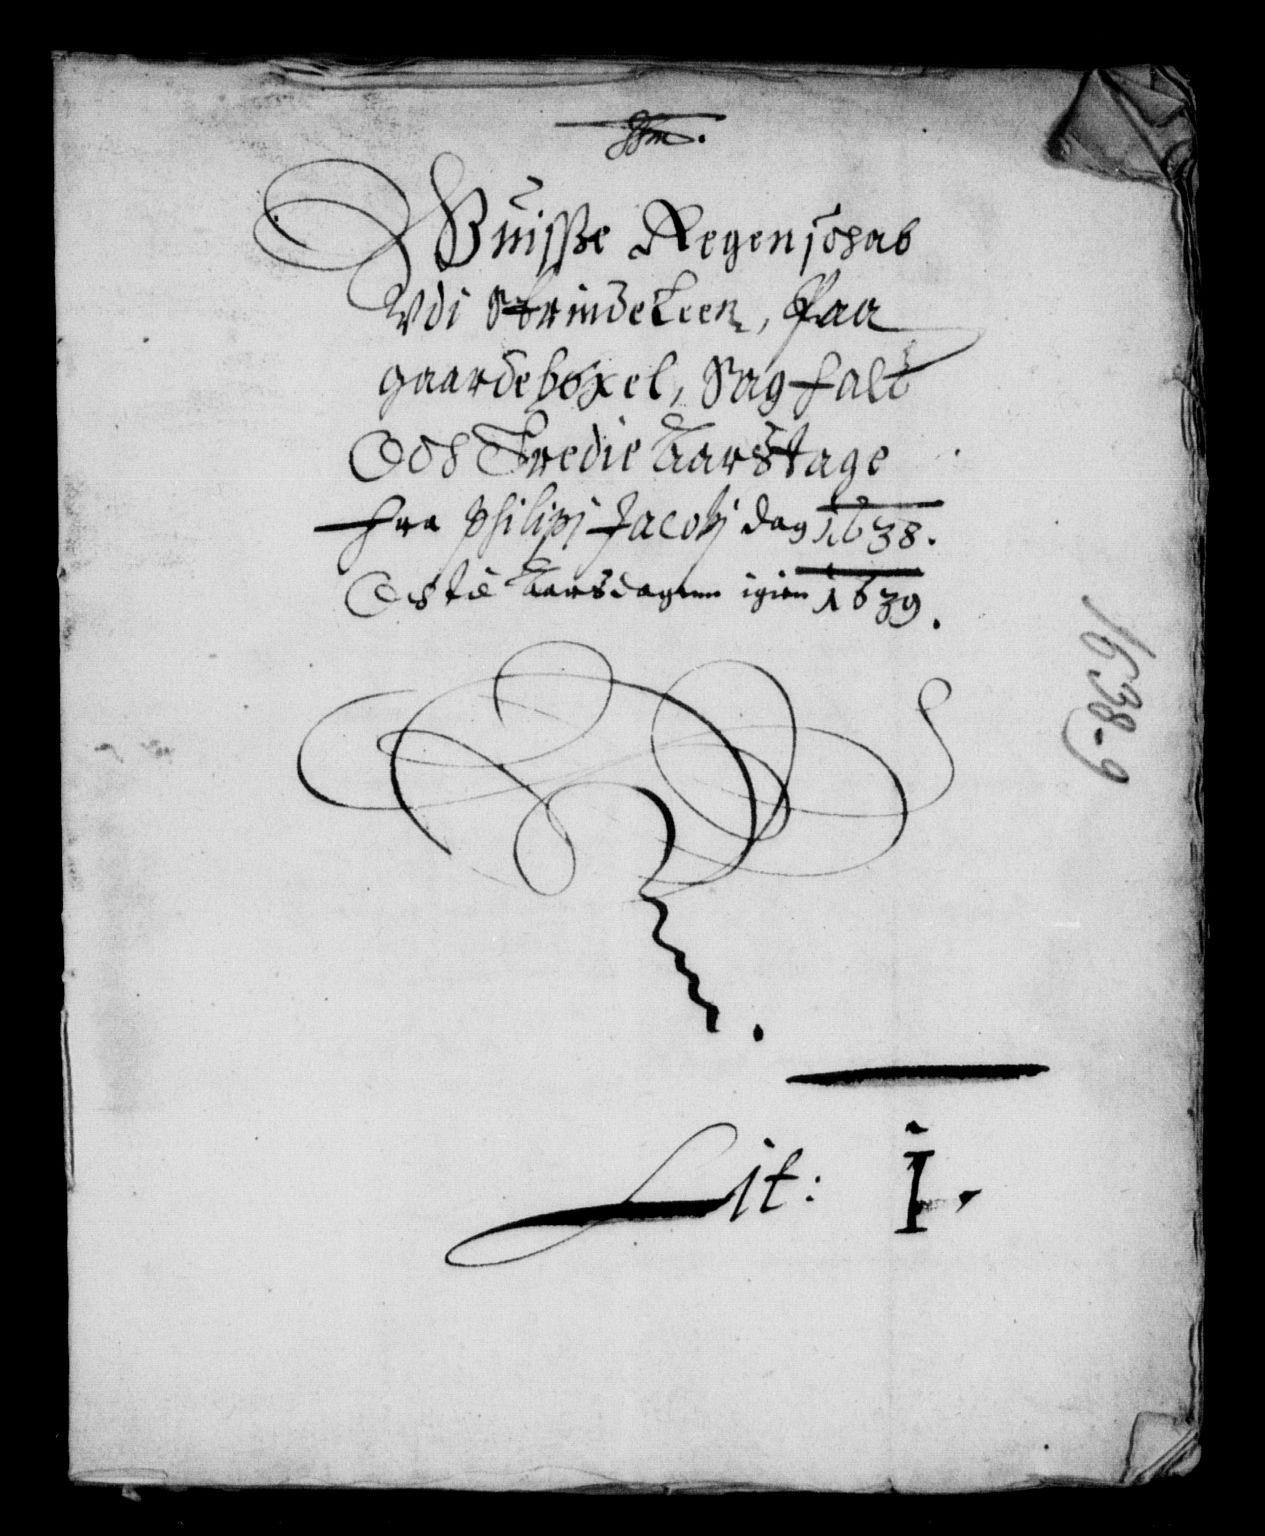 Wuisse Regenschab
Vdi Strindeleen, Paa
gaardebøxel, Sagfald
Och Tredie Aarstage
fra Philipi Jacobj dag 1638.
Och til Aarsdagenn igien 1639.
1638-9
Lit: I.